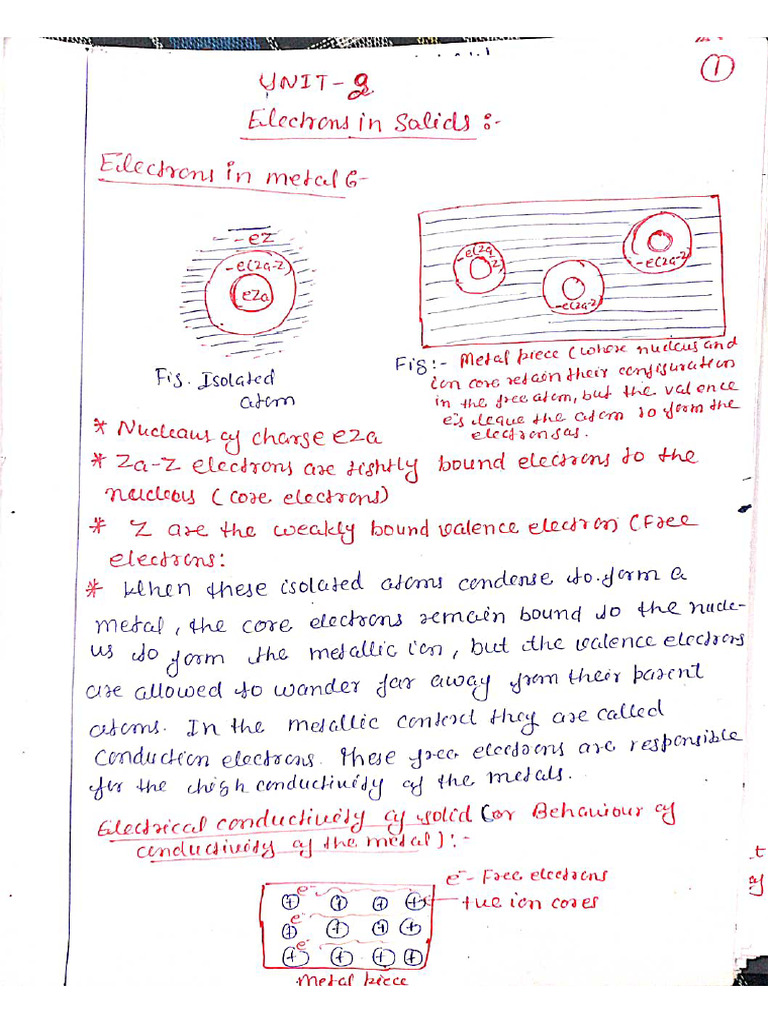 ①
UNIT-2
Electrons in Solids :-
Electrons in metal :-
-eZ
-e(Za-Z)
eZa
-e(Za-Z)
-e(Za-Z)
-e(Za-Z)
Fig. Isolated
atom
Fig:- Metal piece (where nucleus and
ion core retain their configuration
in the free atom, but the valence
e's leave the atom to form the
electron gas.
* Nucleaus of charge eZa
* Za-Z electrons are tightly bound electrons to the
nucleous (core electrons)
* Z are the weakly bound valence electron (Free
electrons:
* When these isolated atoms condense to form a
metal, the core electrons remain bound to the nucle-
us to form the metallic ion, but the valence electrons
are allowed to wander far away from their parent
atoms. In the metallic context they are called
Conduction electrons. These free electrons are responsible
for the high conductivity of the metals.
Electrical conductivity of solid (or Behaviour of
conductivity of the metal) :-
e- Free electrons
+ve ion cores
e-
+ + + +
e-
+ + + +
e-
+ + + +
Metal piece
t
of